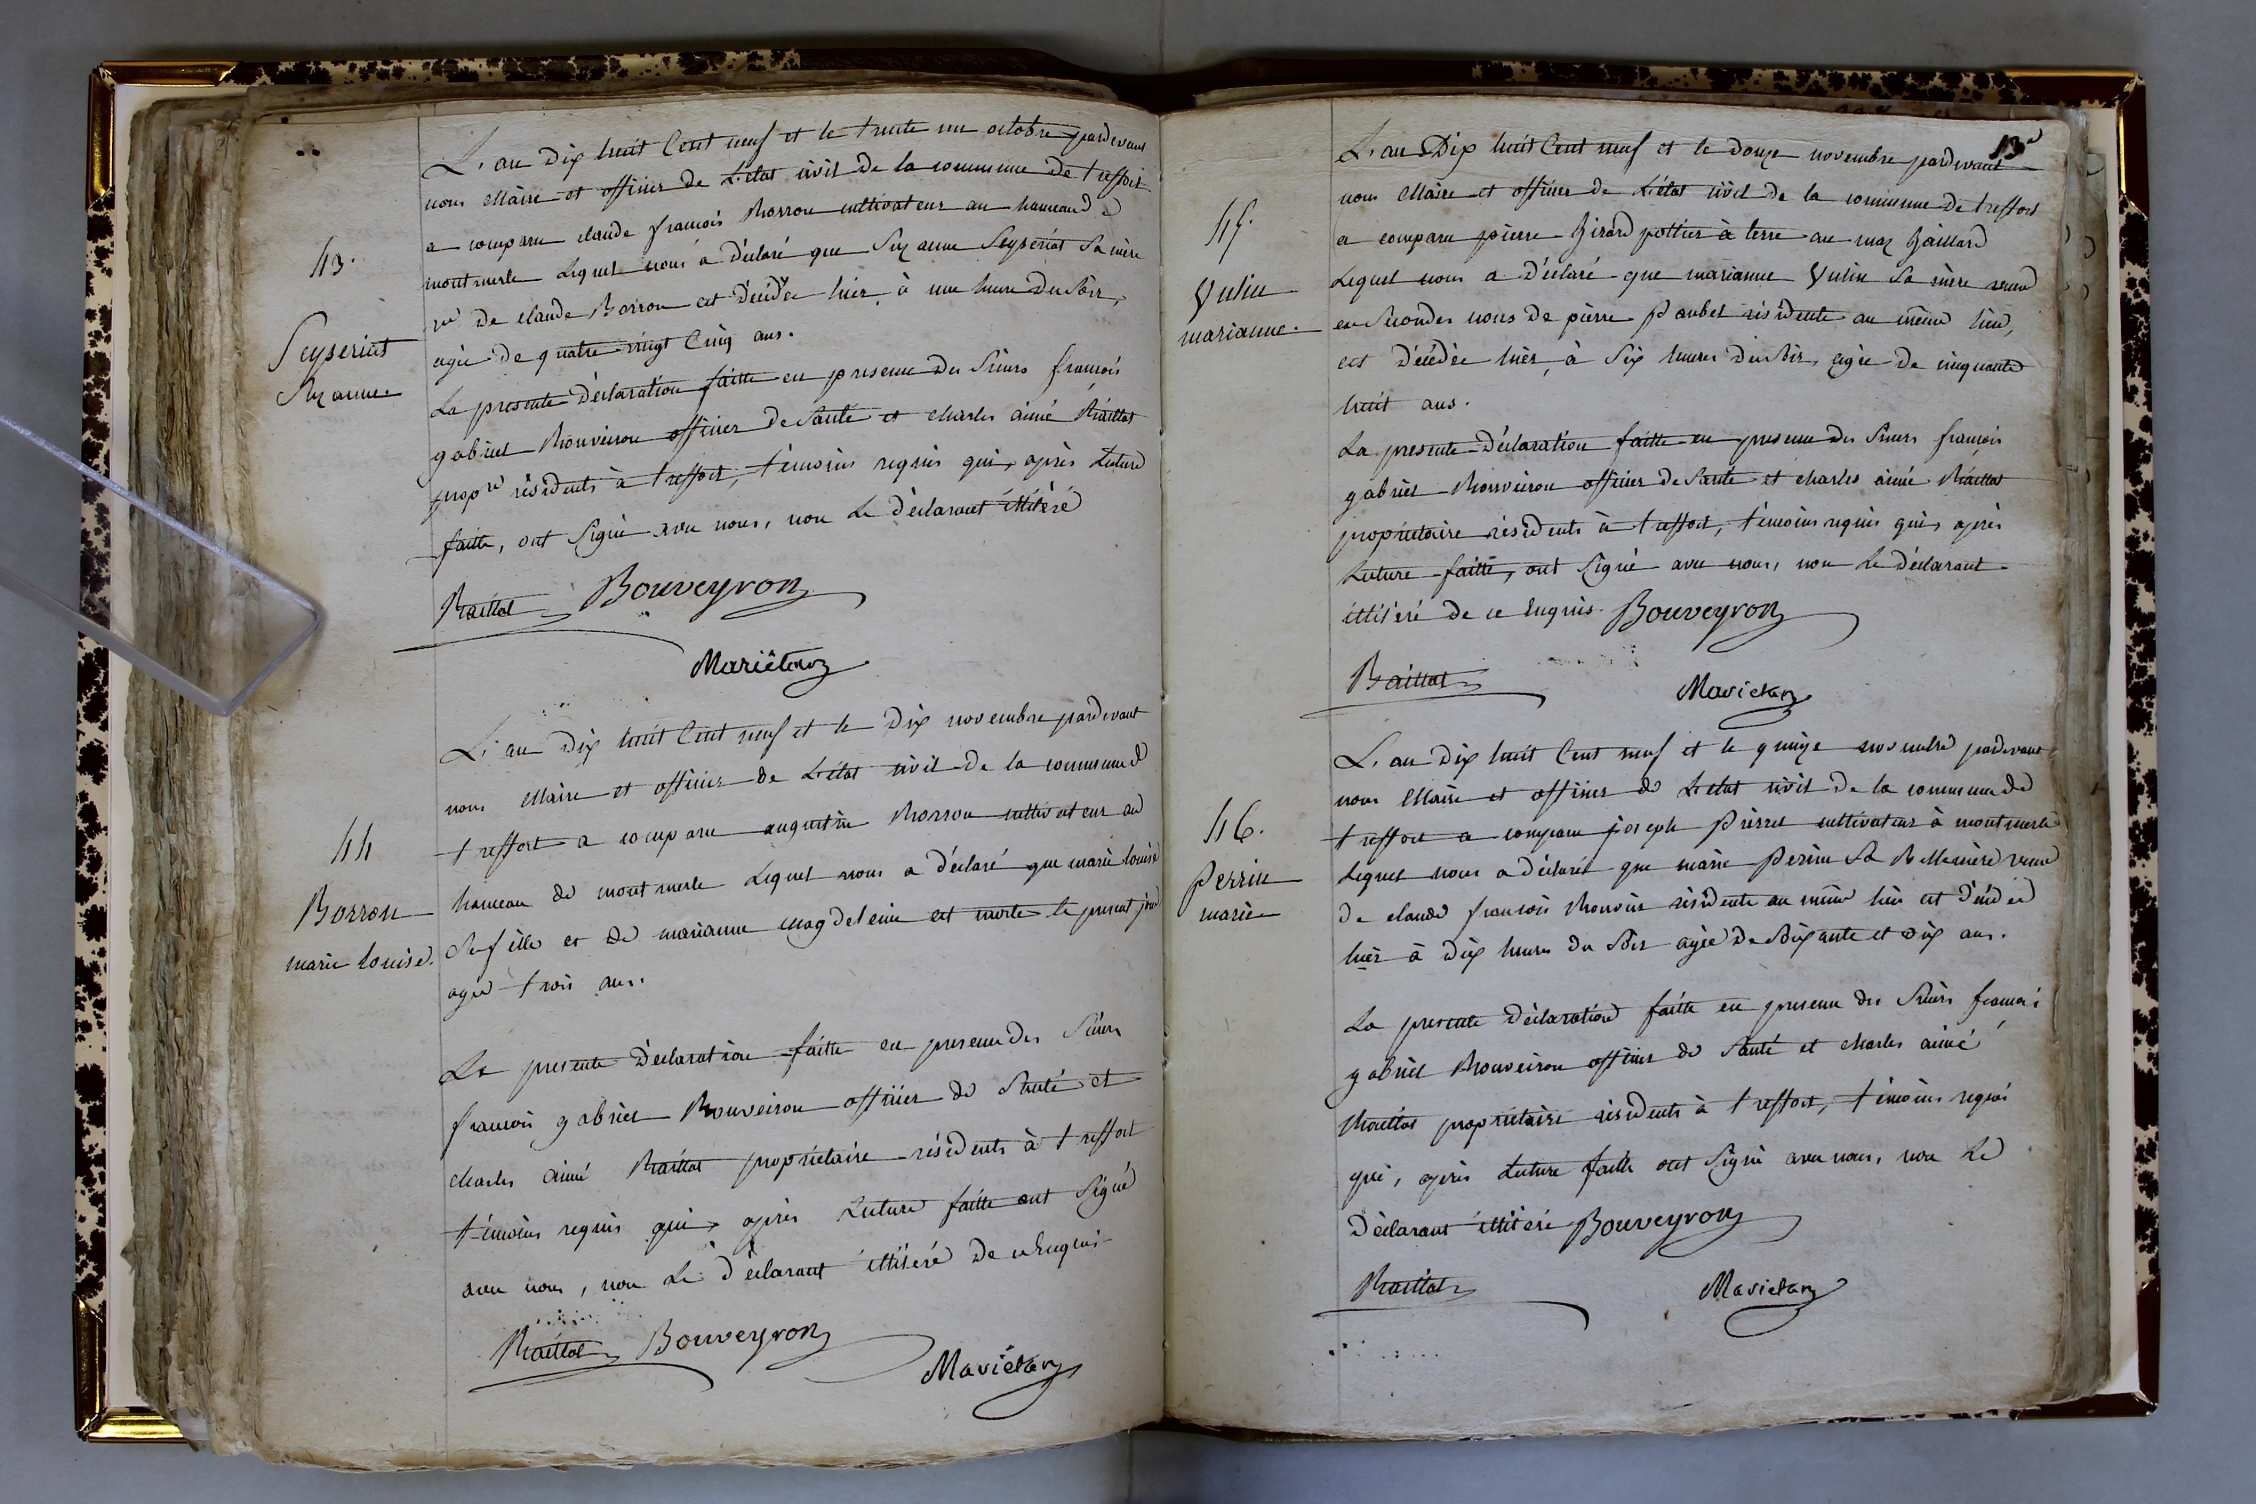 43.
Seyseriat
Suzanne
L'an dix huit Cent neuf et le trente un octobre pardevant
nous Maire et officier de L'etat civil de la commune de treffort
a comparu claude françois Borron cultivateur au hameau de
montmerle Lequel nous a déclaré que Suzanne Seyseriat Sa mère
vve de claude Borron est décédée hier à une heure du Soir,
agée de quatre vingt Cinq ans.
La presente déclaration faitte en presence des Sieurs françois
gabriel Bouveiron officier de Santé et charles aimé Raillat
propre résidents à treffort, témoins requis qui, après Lecture
faitte, ont Signé avec nous, non Le déclarant illitéré
Bouveyron
44
Borron
marie Louise.
L'an dix huit Cent neuf et le dix novembre pardevant
nous Maire et officier de L'état civil de la commune de
treffort a comparu augustin Borron cultivateur au
hameau de montmerle Lequel nous a déclaré que marie Louise
Sa fille et de marianne Magdeleine est morte le present jour
agée trois ans.
La presente déclaration faitte en presence des Sieurs
françois gabriel Bouveiron officier de Santé et
charles aimé Raillat propriétaire résidents à treffort
témoins requis qui, après Lecture faitte ont Signé
avec nous, non Le déclarant illitéré de ce Enquis
Bouveyron
13e
45.
Vulin
marianne.
L'an Dix huit Cent neuf et le douze novembre pardevant
nous Maire et officier de L'état civil de la commune de treffort
a comparu pierre Girard pottier à terre au maz Gaillard
Lequel nous a déclaré que marianne Vulin Sa mère veuve
en Secondes noces de pierre Paubel résidente au même lieu,
est décédée hièr, à Six heures du Soir, agée de cinquante
huit ans.
La presente déclaration faitte en presence des Sieurs françois
gabriel Bouveiron officier de Santé et charles aimé Raillat
propriétaire résidents à treffort, témoins requis qui, après
Lecture faitte, ont Signé avec nous, non Le déclarant
illitéré de ce Enquis. Bouveyron
46.
Perrin
marie
L'an dix huit Cent neuf et le quinze novembre pardevant
nous Maire et officier de L'etat civil de la commune de
treffort a comparu joseph Pirret cultivateur à montmerle
Lequel nous a déclaré que marie Perrin Sa Belle mère veuve
de claude françois Bouvier résidente au même lieu est décédée
hièr à dix heures du Soir agée de Soixante et dix ans.
La presente déclaration faitte en presence des Sieurs françois
gabriel Bouveiron officier de Santé et charles aimé
Raillat propriétaire résidents à treffort, témoins requis
qui, après Lecture faitte ont Signé avec nous, non Le
déclarant illitéré Bouveyron